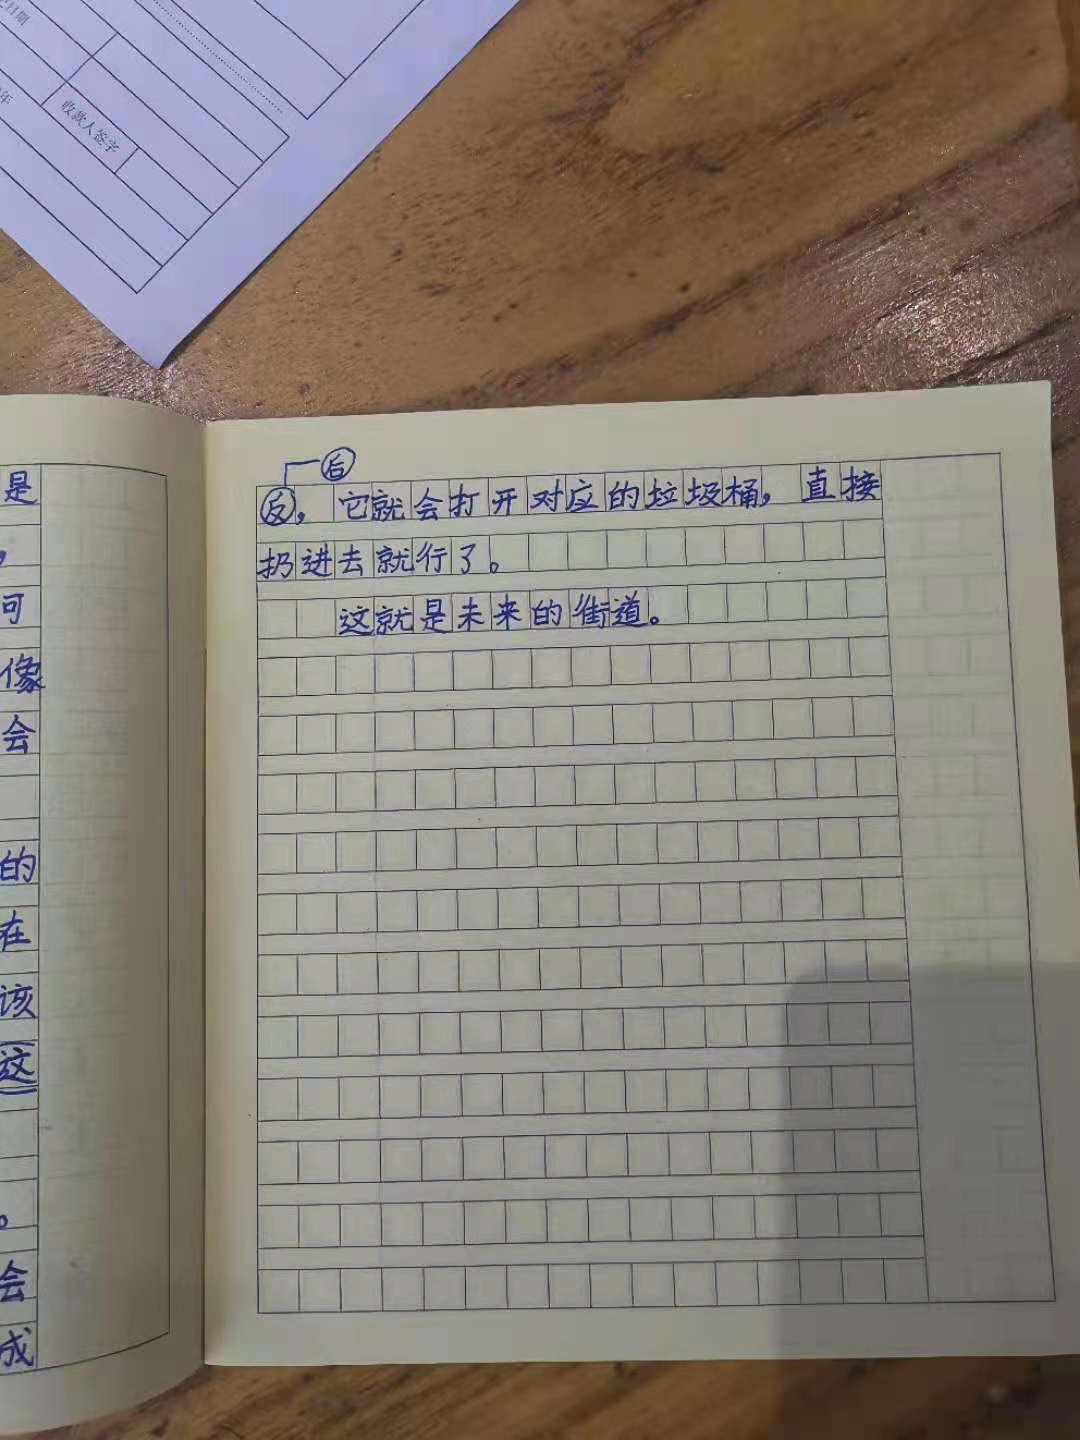 日期
年
收款人签字
是
，
可
像
会
的
在
该
这
。
会
成
后
反，它就会打开对应的垃圾桶，直接
扔进去就行了。
这就是未来的街道。